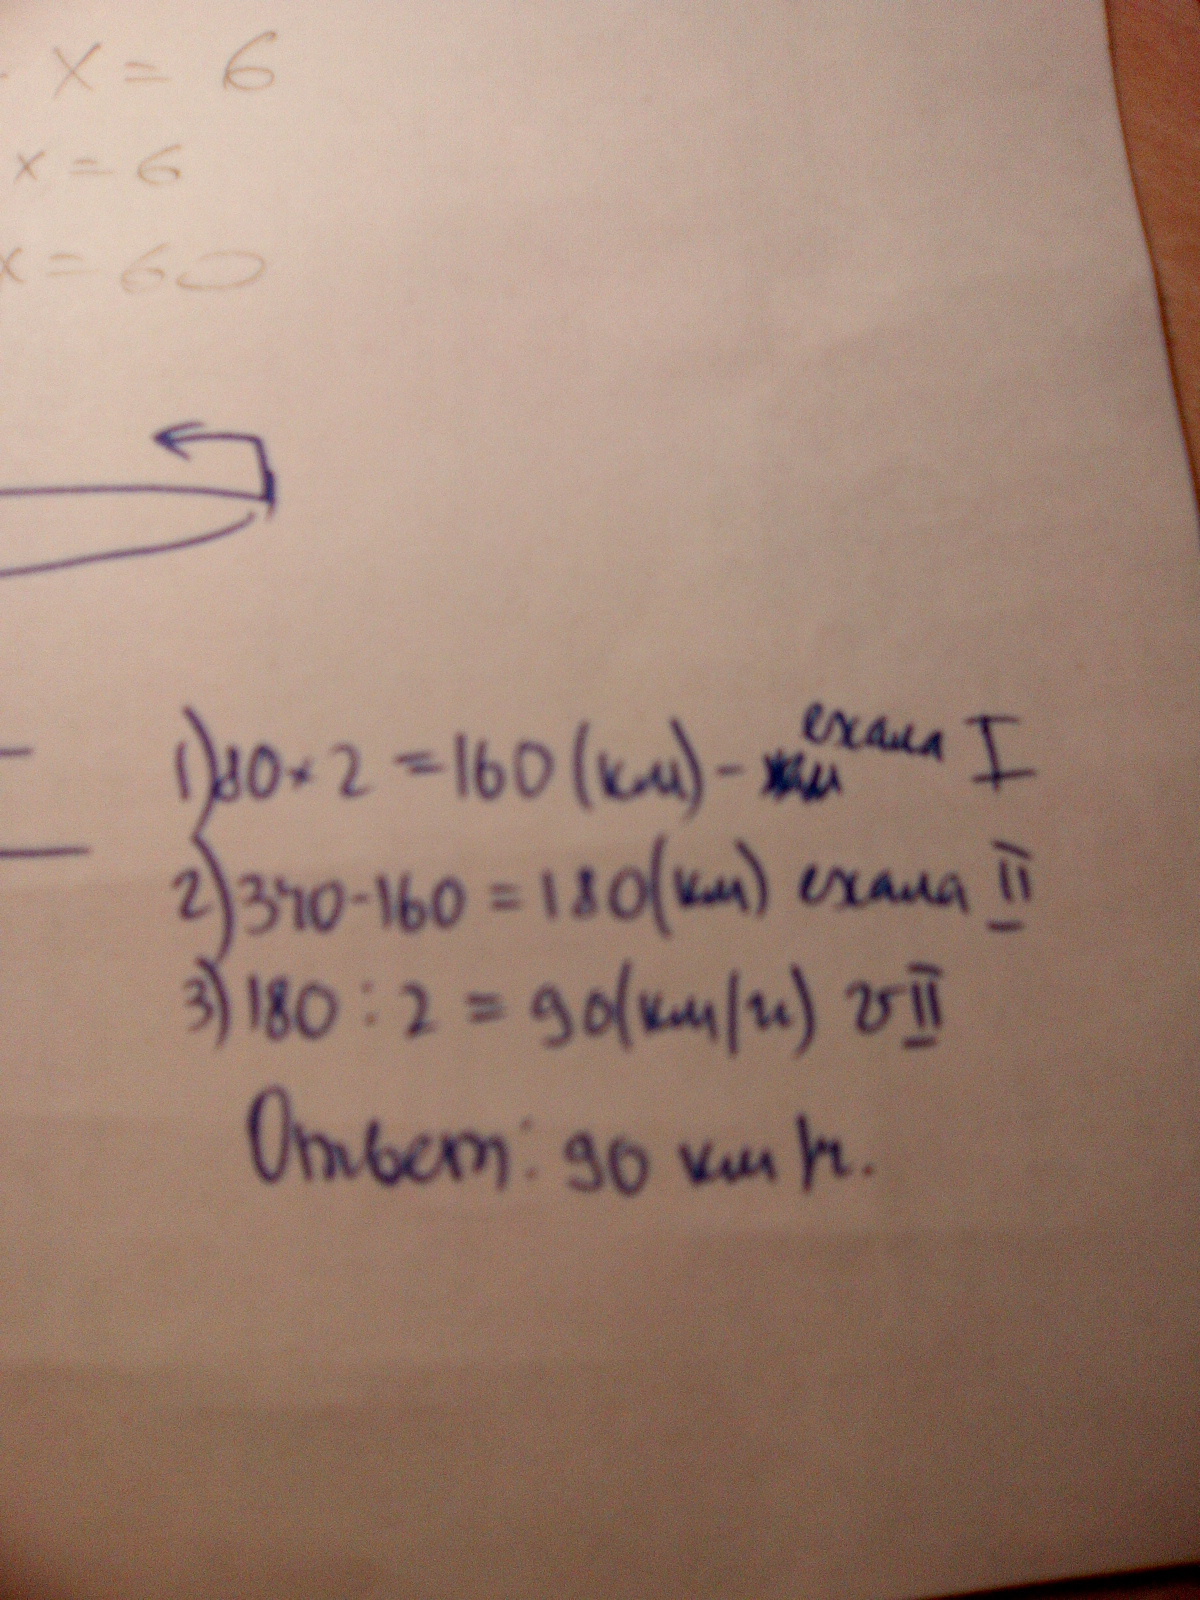 x = 6
x = 6
x = 60
1) 80 × 2 = 160 (км) - ехала I
2) 340 - 160 = 180 (км) ехала II
3) 180 : 2 = 90 (км/ч) v II
Ответ: 90 км/ч.